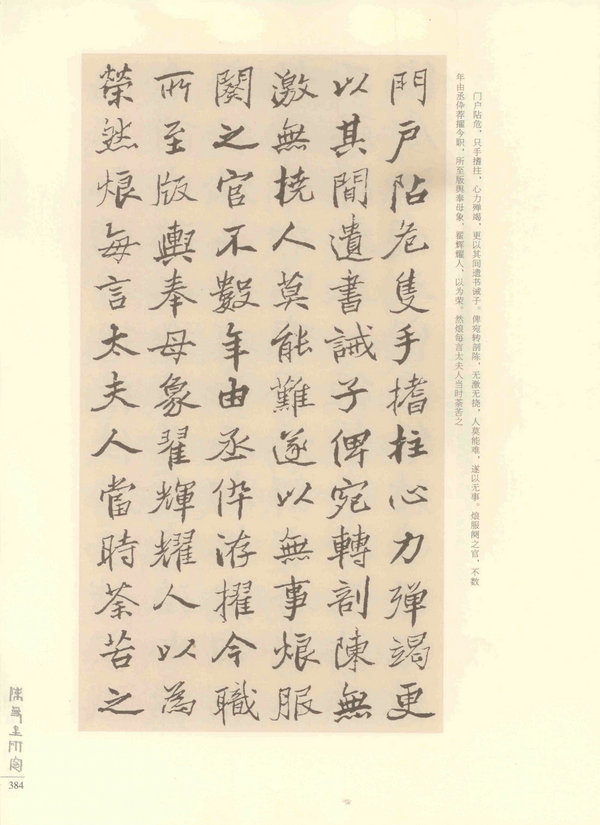 门户阽危,只手搘拄,心力殚竭,更以其间遗书诫子。俾宛转剖陈,无激无挠,人莫能难,遂以无事。烺服阕之官,不数
年由丞倅荐擢今职,所至版舆奉母象,翟辉耀人,以为荣。然烺每言太夫人当时荼苦之
門戶阽危隻手搘柱心力殫竭更
以其間遺書誡子俾宛轉剖陳無
激無撓人莫能難遂以無事烺服
闋之官不數年由丞倅洊擢今職
所至版輿奉母象翟輝耀人以為
榮然烺每言太夫人當時荼苦之
384